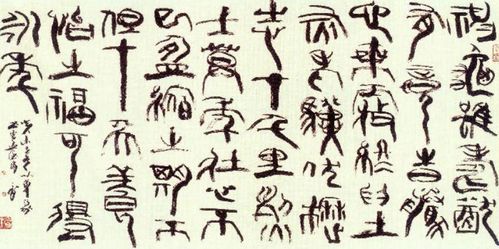 神龜雖壽猶
有竟時騰
蛇乘霧終為土
灰老驥伏櫪
志在千里烈
士暮年壯心不
已盈縮之期不
但在天養
怡之福可得
永年